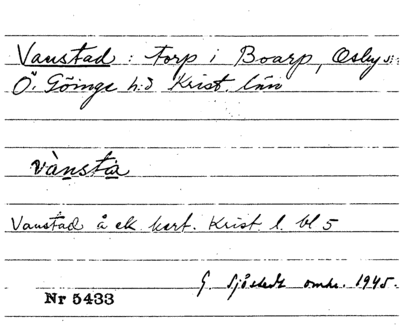 Vanstad : torp i Boarp, Osby s:n
Ö. Göinge h:d Krist. län
vànsta
Vanstad å ek kart. Krist. l. bl 5
G. Sjöstedt omkr. 1945.
Nr 5433